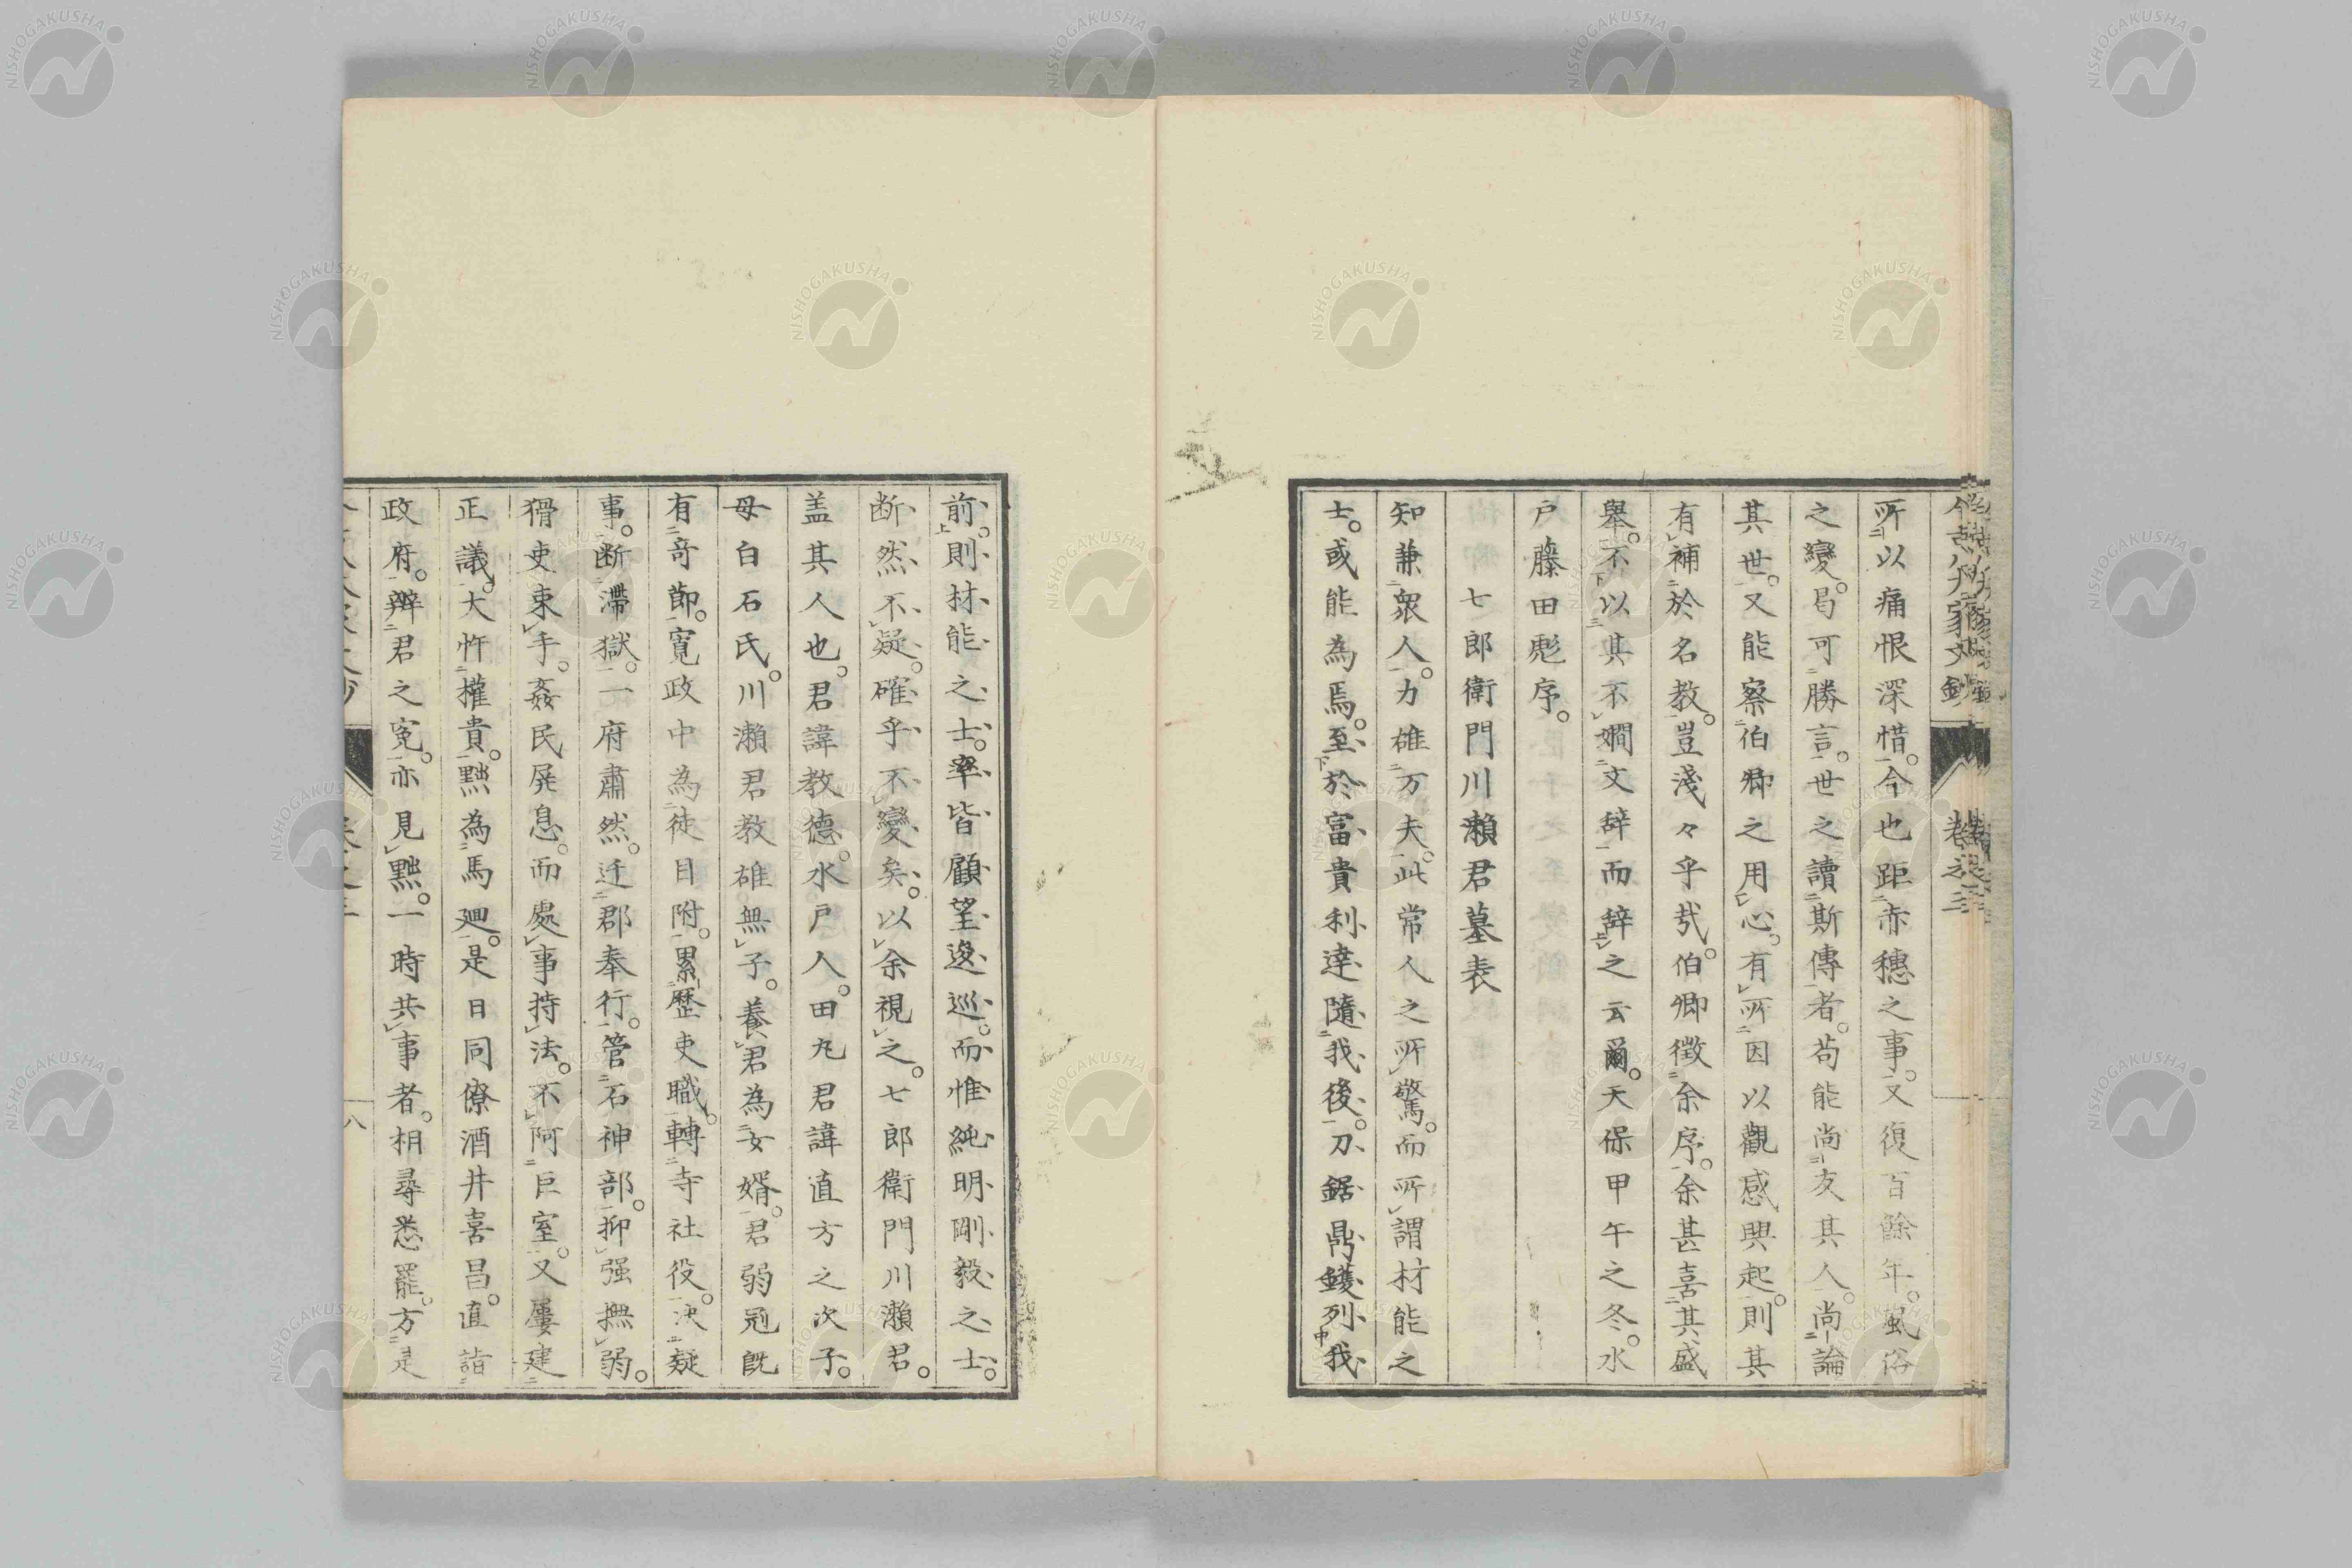 所以痛恨深惜。今也距赤穗之事。又復百餘年。風俗
之變。曷可勝言。世之讀斯傳者。苟能尚友其人。尚論
其世。又能察伯卿之用心。有所因以觀感興起。則其
有補於名教。豈淺々乎哉。伯卿徵余序。余甚喜其盛
舉。不以其不嫺文辞而辞之云爾。天保甲午之冬。水
戸藤田彪序。
七郎衛門川瀨君墓表
知兼衆人。力雄万夫。此常人之所驚。而所謂材能之
士。或能為焉。至於富貴利達隨我後。刀鋸鼎鑊列我
前。則材能之士。率皆顧望逡巡。而惟純明剛毅之士。
断然不疑。確乎不變矣。以余視之。七郎衛門川瀨君。
盖其人也。君諱教德。水戸人。田丸君諱直方之次子。
母白石氏。川瀨君教雄無子。養君為女婿。君弱冠既
有奇節。寛政中為徒目附。累歷吏職。轉寺社役。决疑
事。断滯獄。一府肅然。迁郡奉行。管石神部。抑强撫弱。
猾吏束手。姦民屏息。而處事持法。不阿巨室。又屢建
正議。大忤權貴。黜為馬廻。是日同僚酒井喜昌。直詣
政府。辨君之寃。亦見黜。一時共事者。相尋悉罷。方是
卷之三
八
NISHOGAKUSHA